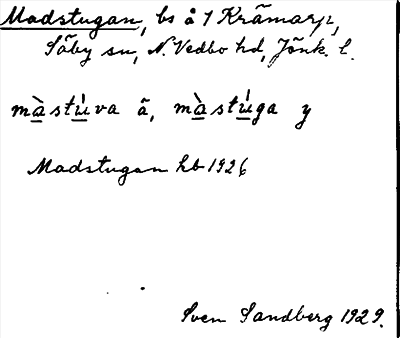 Madstugan, bs å 1 Krāmarp,
Säby sn, N. Vedbo hd, Jönk. l.
màstúva ä, màstúga y
Madstugan hb 1926
Sven Sandberg 1929.